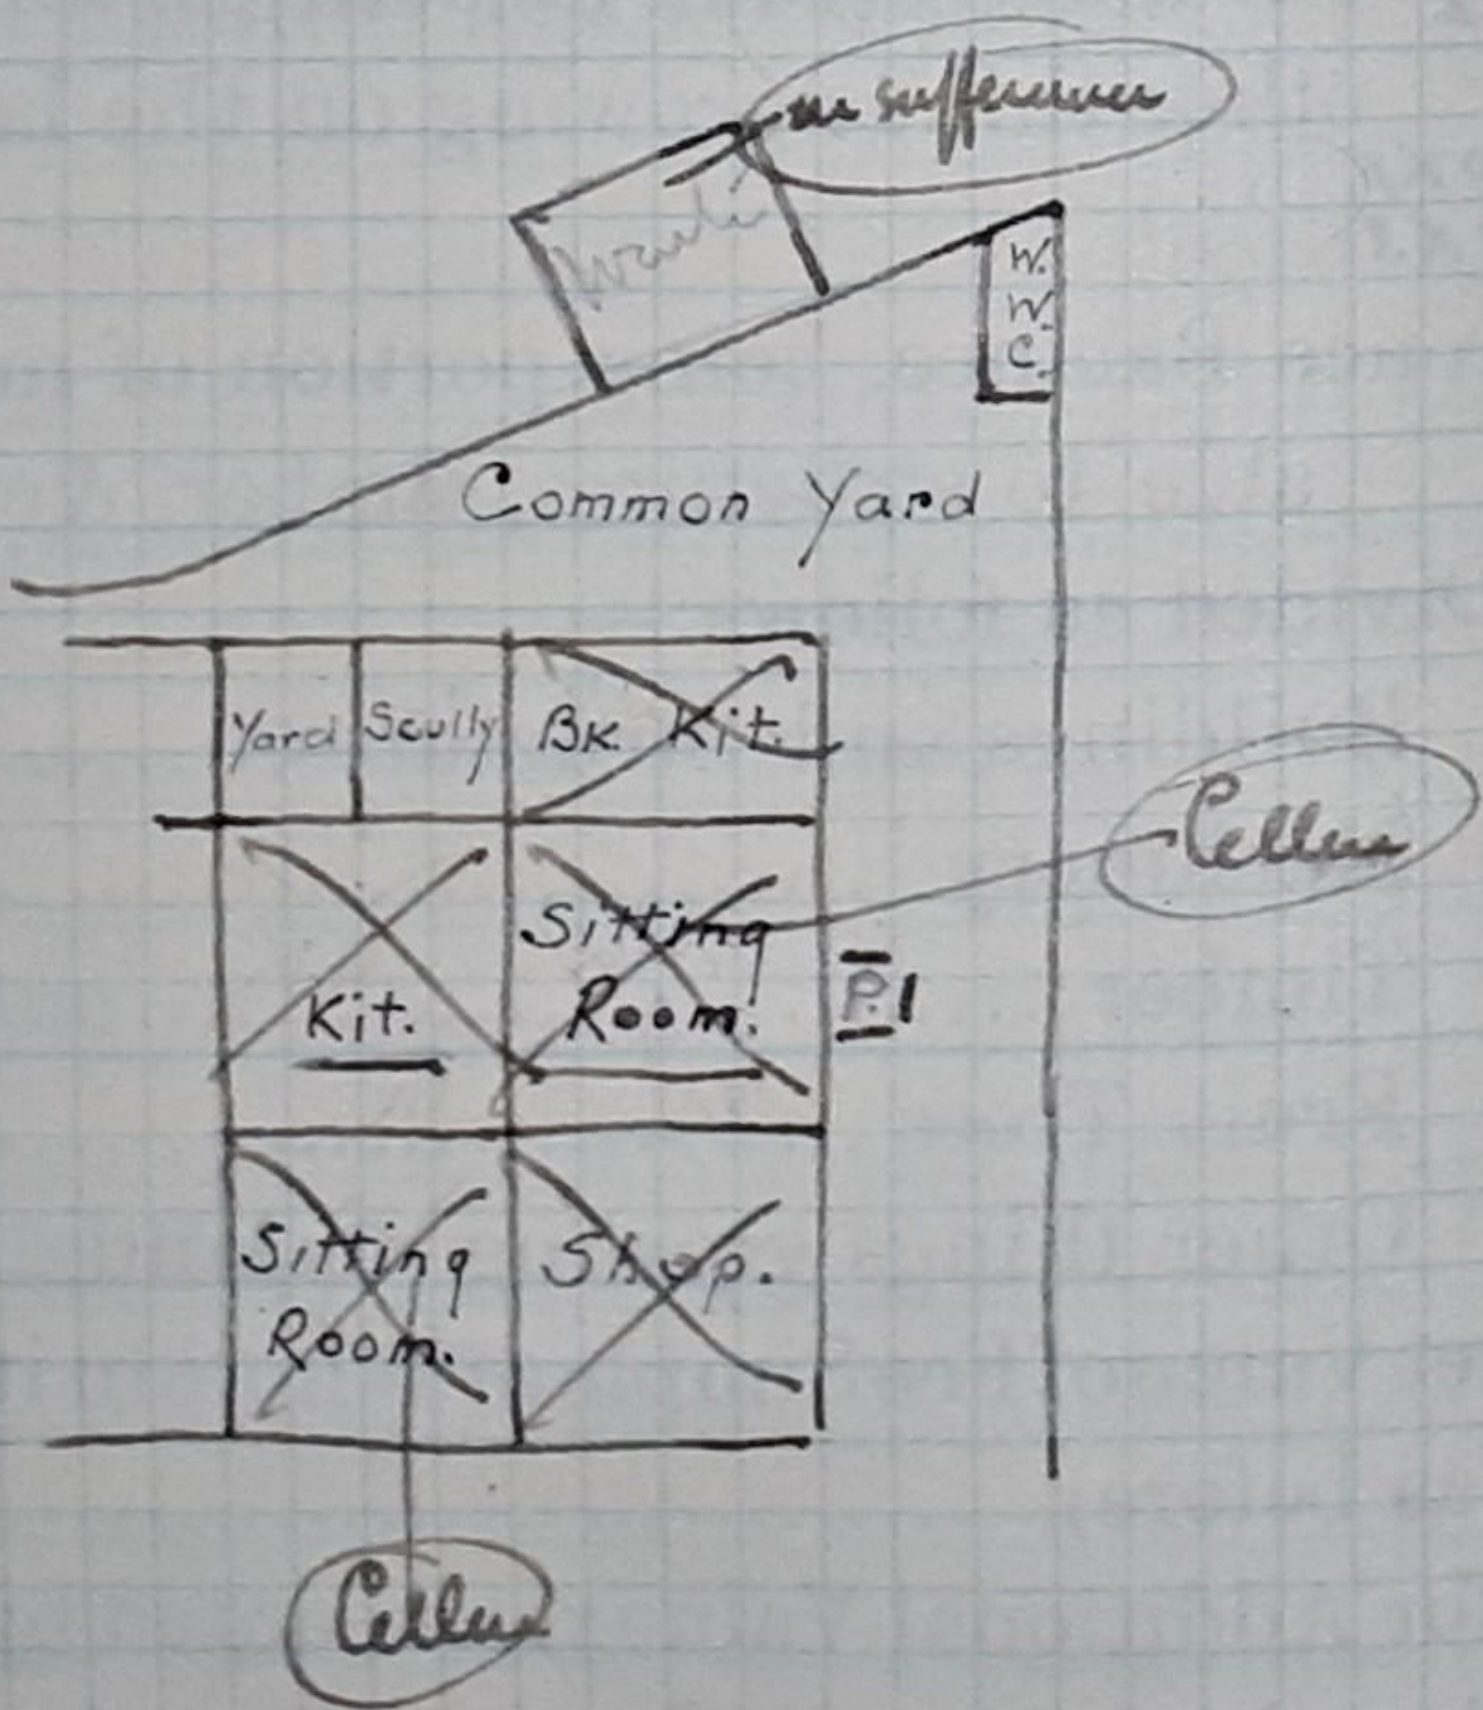 on sufferance
W.
W.
C.
Common Yard
Yard Scully Bk. Kit.
Cellar
Sitting
Room.
P.
Kit.
Sitting
Room.
Shop.
Cellar